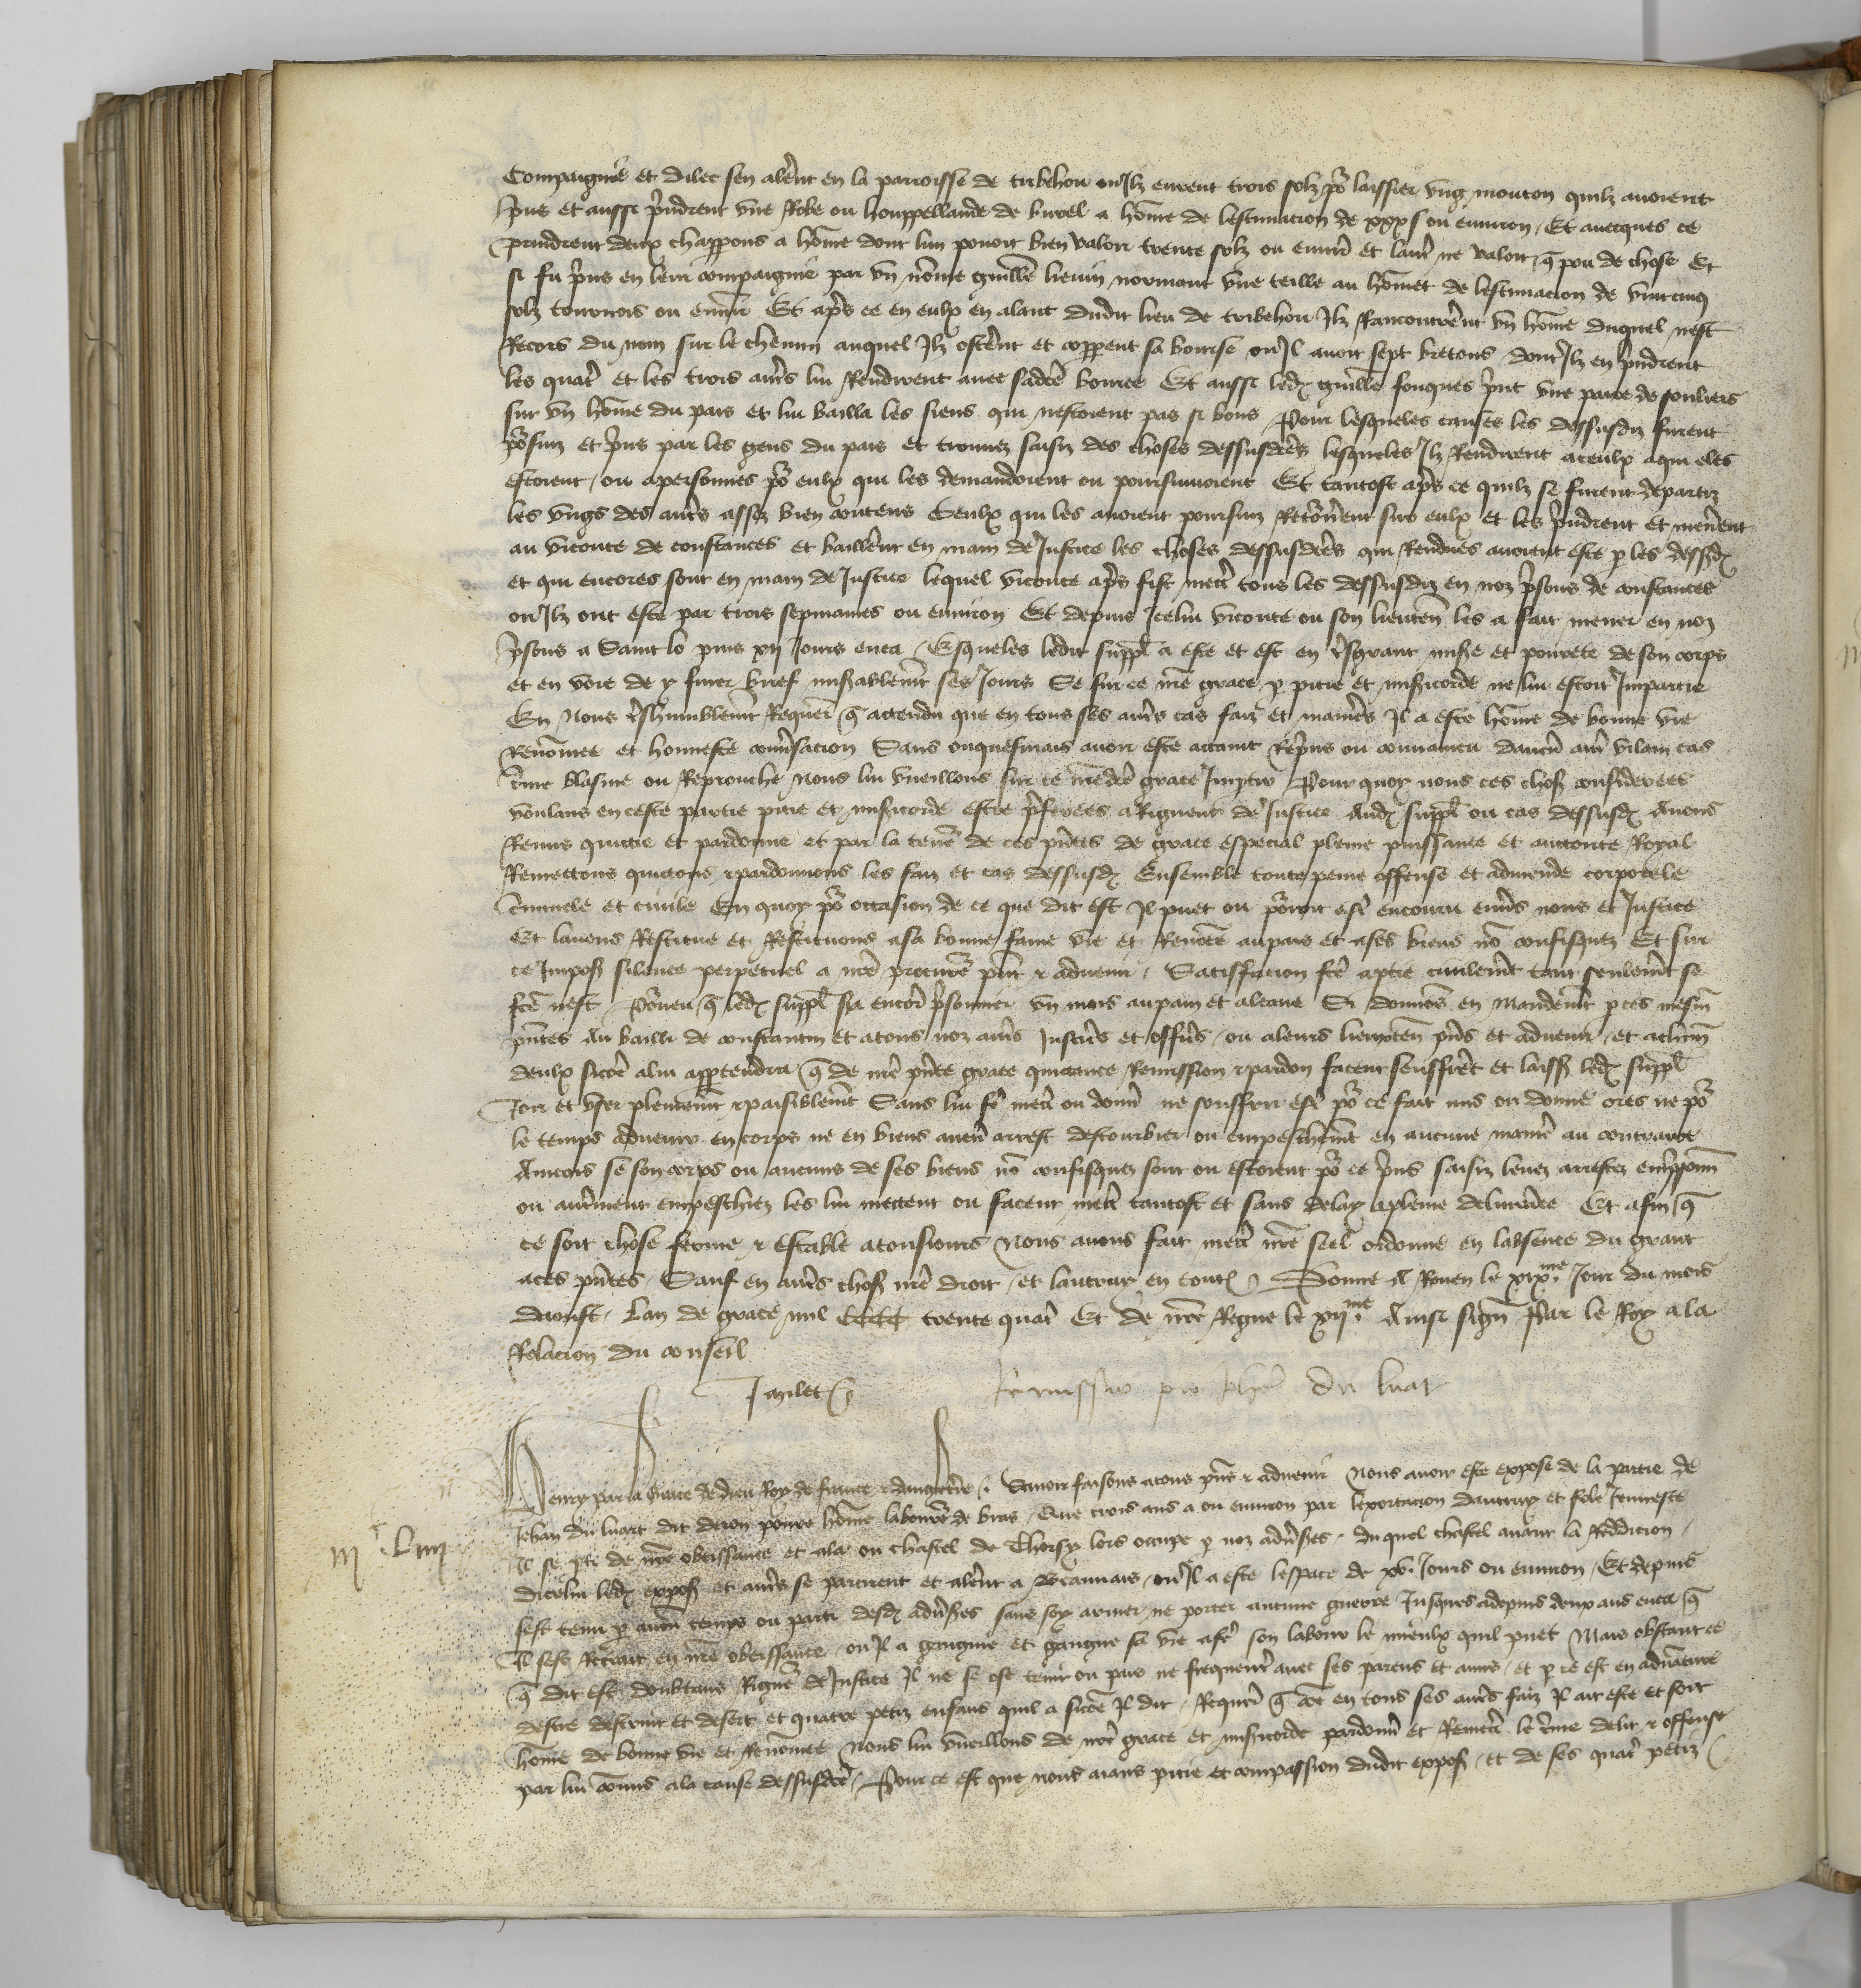 Compaignie et dilec sen alerent en la parroisse de tribehou ou Ilz eurent trois solz pour laissier ung mouton quilz avoient
prins et aussi prindrent une Robe ou houppellande de burel a homme de lestimacion de xxx s ou environ Et avecques ce
prindrent deux chapperons a homme dont lun povoit bien valoir trente solz ou environ et lautre ne valoit que pou de chose Et
si fu prins en leur compaignie par un nomme guillem lievin normant une teille au hommet de lestimacion de vintcinq
solz tournois ou environ Et apres ce en eulx en alant dudit lieu de tribehou Ilz Rancontrerent un homme duquel nest
Recors du nom sur le chemin auquel Ilz osterent et copperent sa bourse ou Il avoit sept bretons dont Ilz en prindrent
les quatre et les trois autres lui Rendirent avec sadicte bource Et aussi ledit guillem fouques print une paire de souliers
sur un homme du pais et lui bailla les siens qui nestoient pas si bons Pour lesqueles causes les dessusdiz furent
poursuiz et prins par les gens du pais et trouvez saisiz des choses dessusdictes lesqueles Ilz Rendirent aceulx aqui eles
estoient ou apersonnes pour eulx qui les demandoient ou poursuivoient Et tantost apres ce quilz se furent departiz
les ungs des autres assez bien contens Ceulx qui les avoient poursuiz Retournerent sur eulx et les prindrent et menerent
au viconte de constances et baillerent en main de Justice les choses dessusdictes qui Rendues avoient este par les dessusdiz
et qui encores sont en main de Justice lequel viconte apres fist mettre tous les dessusdiz en noz prisons de constances
ou Ilz ont este par trois sepmaines ou environ Et depuis Icelui viconte ou son lieutenant les a fait mener en noz
prisons a Saint lo puis xij Jours enca Esqueles ledit suppliant a este et est en tresgrant misere et povrete de son corps
et en voie de y finer brief miserablement ses Jours Se sur ce nostre grace par pitie et misericorde ne lui estoit Impartie
En Nous treshumblement Requerant que attendu que en tous ses autres cas faiz et manieres Il a este homme de bonne vie
Renommee et honneste conversacion Sans onquesmais avoir este attaint Reprins ou convaincu daucun autre vilain cas
crime blasme ou Reprouche Nous lui vueillons sur ce nostredicte grace Impartir Pour quoy nous ces choses considerees
voulans en ceste partie pitie et misericorde estre preferees aRigueur de Justice Audit suppliant ou cas dessusdit Avons
Remis quictie et pardonne et par la teneur de ces presentes de grace especial pleine puissance et auctorite Royal
Remettons quictons et pardonnons les faiz et cas dessusdiz Ensemble toute peine offense et admende corporele
criminele et civile En quoy pour occasion de ce que dit est Il puet ou pourroit estre encouru envers nous et Justice
Et lavons Restitue et Restituons asa bonne fame vie et Renommee aupais et ases biens non confisquez Et sur
ce Imposons silence perpetuel a nostre procureur present et advenir Satisfacion faicte apartie civilement tant seulement se
faicte nest Pourveu que ledit suppliant sera encores prisonnier un mois aupain et aleaue Si donnons en Mandement par ces mesmes
presentes Au bailli de constantin et atous noz autres Justiciers et officiers ou aleurs lieuxtenans presens et advenir et achascun
deulx sicomme alui appartendra que de nostre presente grace quictance Remission et pardon facent seuffrent et laissent ledit suppliant
Joir et user plainement et paisiblement Sans lui faire mettre ou donner ne souffrir estre pour ce fait mis ou donne ores ne pour
le temps advenir en corps ne en biens aucun arrest destourbier ou empeschement en aucune maniere au contraire
Aincois se son corps ou aucuns de ses biens non confisquez sont ou estoient pour ce prins saisiz levez arrestez emprisonnez
ou autrement empeschiez les lui mettent ou facent mettre tantost et sans delay apleine delivrance Et afin que
ce soit chose ferme et estable atousjours Nous avons fait mettre nostre seel ordonne en labsence du grant
aces presentes Sauf en autres choses nostre droit et lautruy en toutes Donne A Rouen le xixme Jour du mois
daoust Lan de grace mil CCCC trente quatre Et de nostre Regne le xijme Ainsi signe Par le Roy ala
Relacion du conseil
Jaquet
Remissio pro Johanne du luat
Henry par la grace de dieu Roy de france et dangleterre Savoir faisons atous presens et advenir Nous avoir este expose de la partie de
Jehan du luart dit deron povre homme laboureur de bras Que trois ans a ou environ par lexortacion dautruy et fole Jeunesse
Il se parti de nostre obeissance et ala ou chastel de Thorsy lors occupe par noz adversaires Duquel chastel avant la Reddicion
dicelui ledit exposant et autres se partirent et alerent a Beauvais ou Il a este lespace de xv Jours ou environ Et depuis
sest tenu par aucun temps ou parti desdiz adversaires sans soy armer ne porter aucune guerre Jusques adepuis deux ans enca que
Il sest Retrait en nostre obeissance ou Il a gangnie et gangne sa vie afaire son labour le mieulx quil puet Mais obstant ce
que dit est doubtant Rigueur de Justice Il ne se ose tenir ou pais ne frequenter avec ses parens et amis et par ce est en adventure
destre destruit et desert et quatre petiz enfans quil a sicomme Il dit Requerant que comme en tous ses autres faiz Il ait este et soit
homme de bonne vie et Renommee Nous lui vueillons de nostre grace et misericorde pardonner et Remettre le crime delit et offense
par lui commis ala cause dessusdicte Pour ce est que nous aians pitie et compassion dudit exposant et de ses quatre petiz